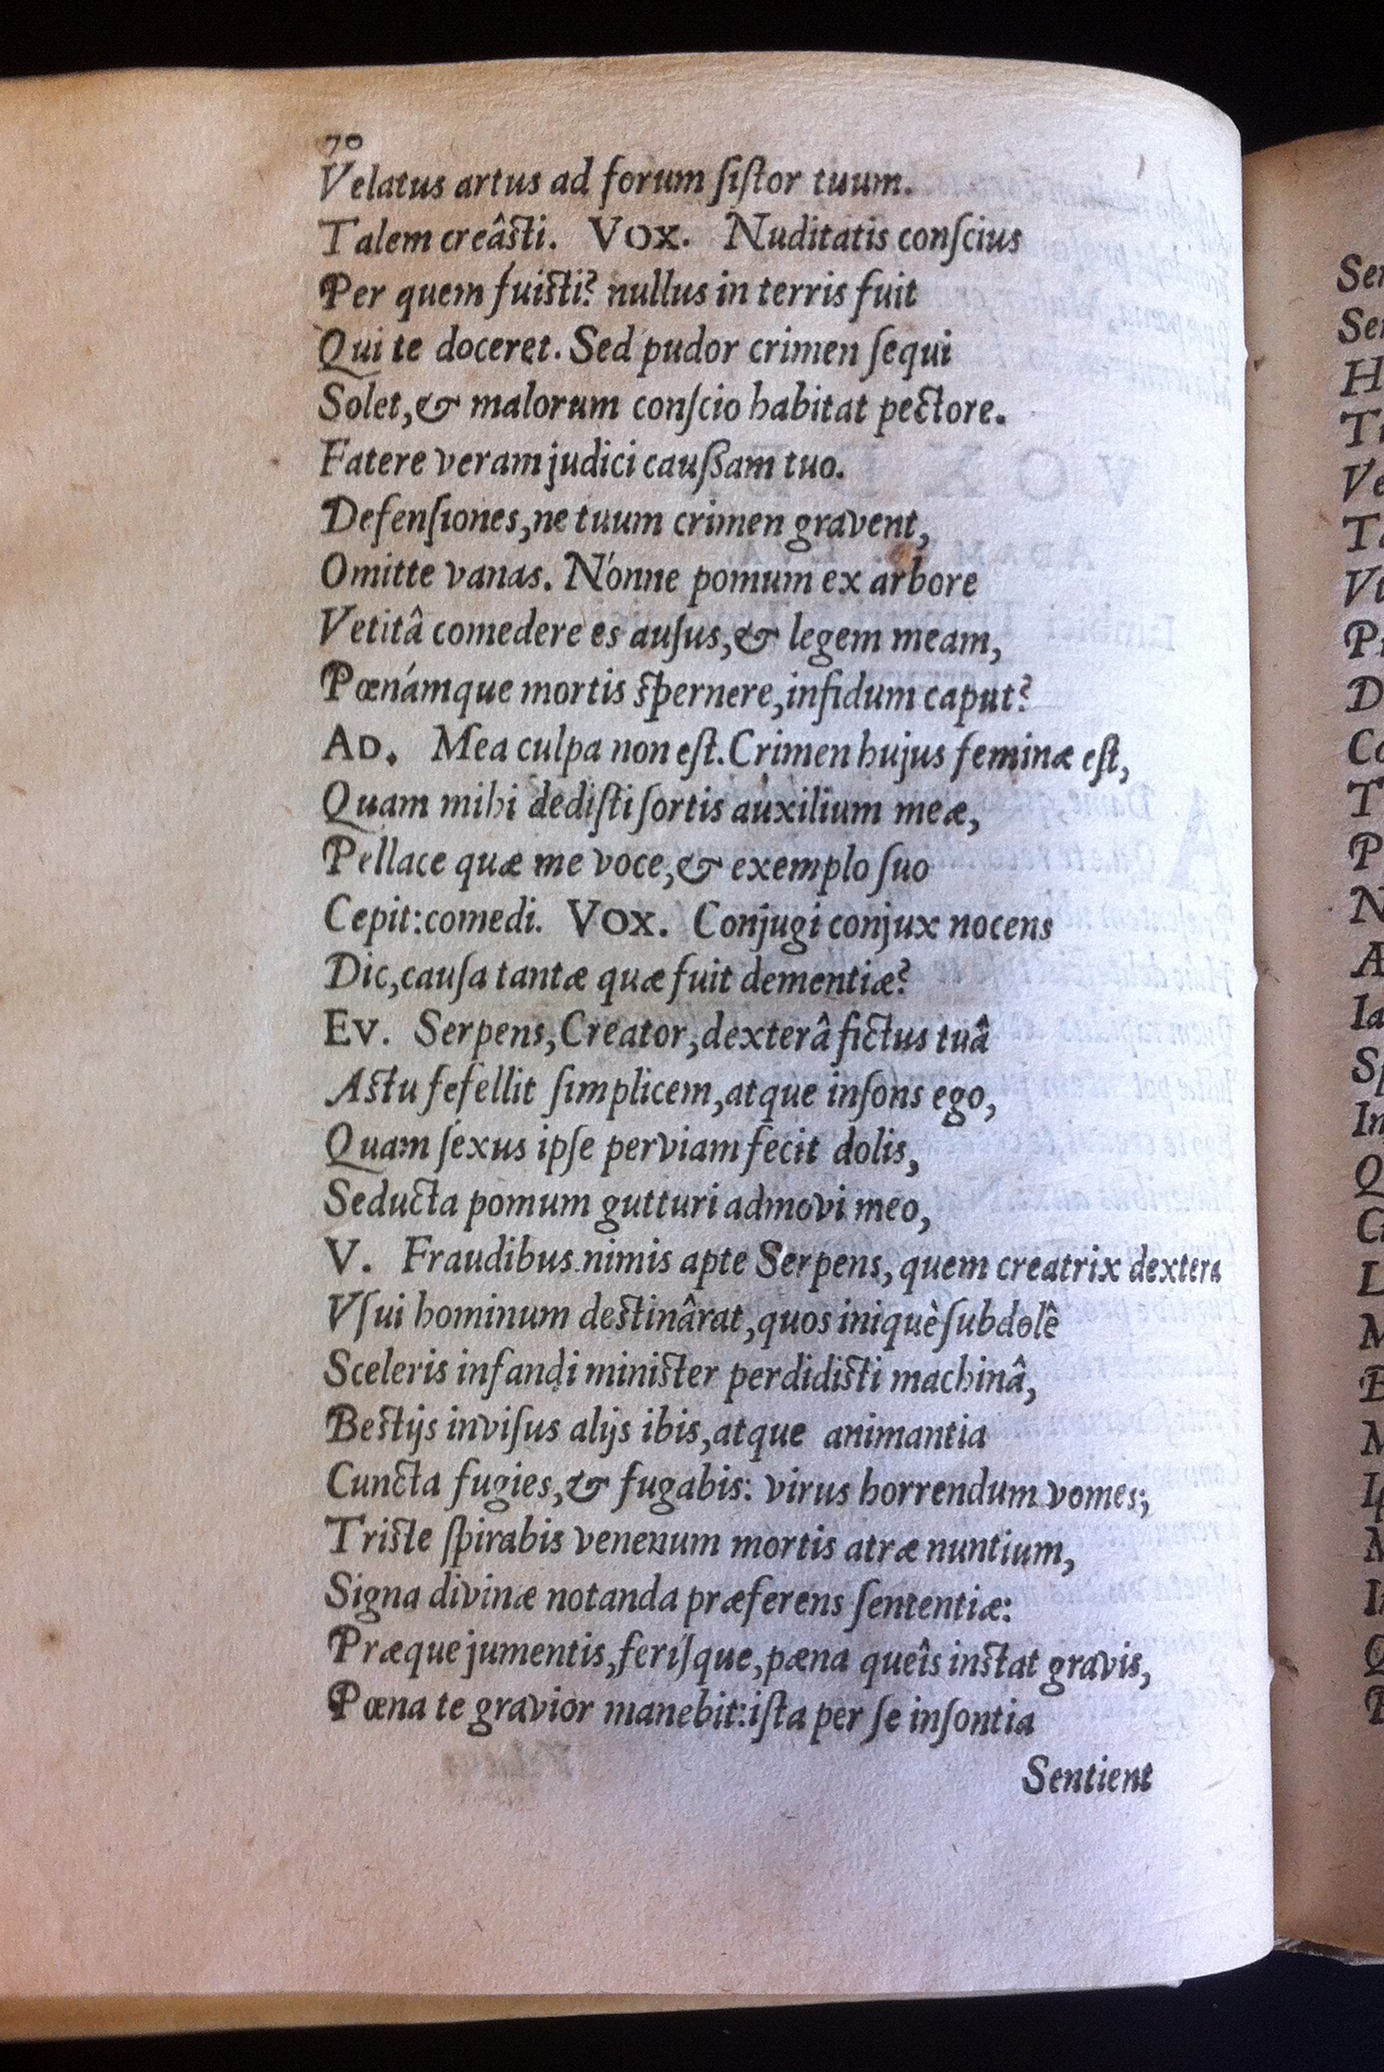 70
Velatus artus ad forum ſiſtor tuum.
Talem creâsti. VOX. Nuditatis conſcius
Per quem fuisti? nullus in terris fuit
Qui te doceret. Sed pudor crimen ſequi
Solet, & malorum conſcio habitat pectore.
Fatere veram judici cauſſam tuo.
Defenſiones, ne tuum crimen gravent,
Omitte vanas. Nónne pomum ex arbore
Vetitâ comedere es auſus, & legem meam,
Pœnámque mortis spernere, infidum caput?
AD. Mea culpa non eſt. Crimen hujus feminæ eſt,
Quam mihi dediſti ſortis auxilium meæ,
Pellace quæ me voce, & exemplo ſuo
Cepit: comedi. VOX. Conjugi conjux nocens
Dic, cauſa tantæ quæ fuit dementiæ?
EV. Serpens, Creator, dexterâ fictus tuâ
Astu fefellit ſimplicem, atque inſons ego,
Quam ſexus ipſe perviam fecit dolis,
Seducta pomum gutturi admovi meo,
V. Fraudibus nimis apte Serpens, quem creatrix dextera
Vſui hominum destinârat, quos iniquè ſubdolê
Sceleris infandi minister perdidisti machinâ,
Bestijs inviſus alijs ibis, atque animantia
Cuncta fugies, & fugabis: virus horrendum vomes;
Triste ſpirabis venenum mortis atræ nuntium,
Signa divinæ notanda præferens ſententiæ:
Præque jumentis, feriſque, pæna queîs instat gravis,
Pœna te gravior manebit: iſta per ſe inſontia
Sentient
Ser
Ser
H
Ve
D
Co
T
P
N
A
Ia
Sp
In
Q
L
M
B
M
M
Q